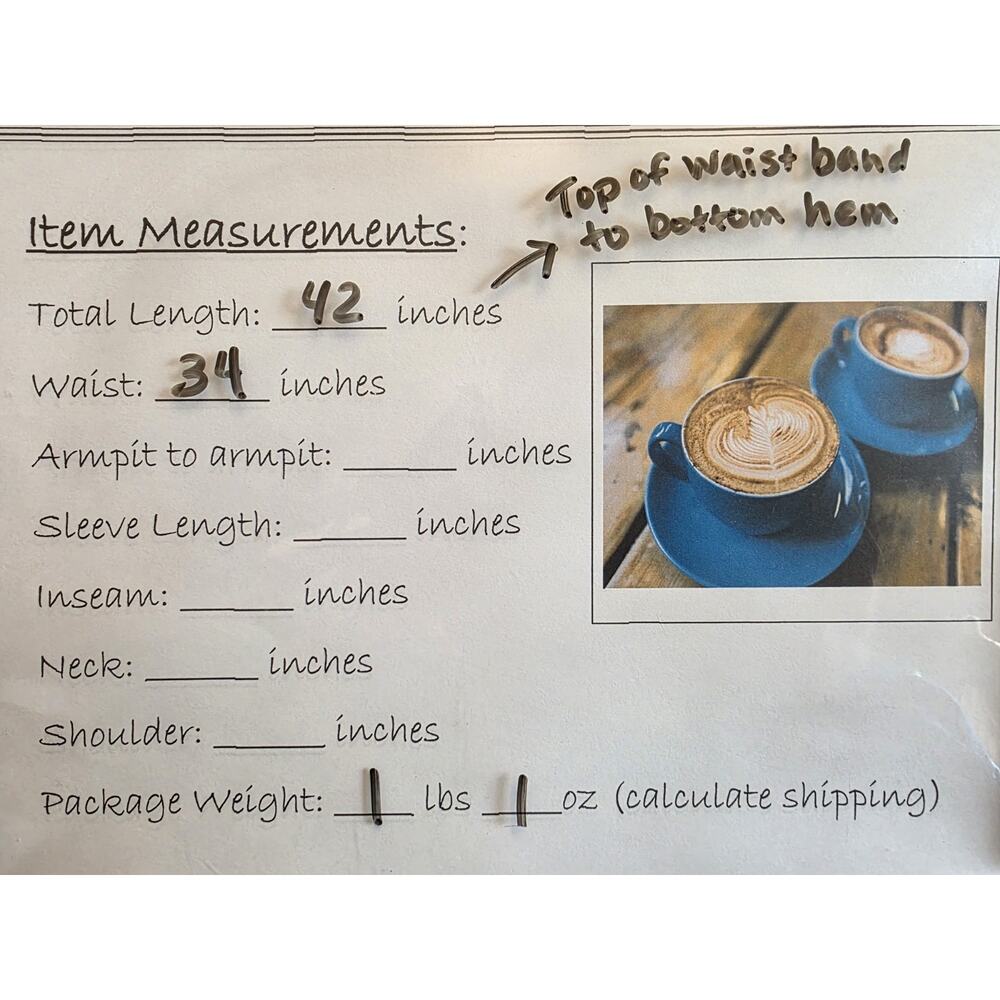 Top of waist band
to bottom hem
Item Measurements:
Total Length: 42 inches
Waist: 34 inches
Armpit to armpit: ______ inches
Sleeve Length: ______ inches
Inseam: ______ inches
Neck: ______ inches
Shoulder: ______ inches
Package Weight: 1 lbs 1 oz (calculate shipping)